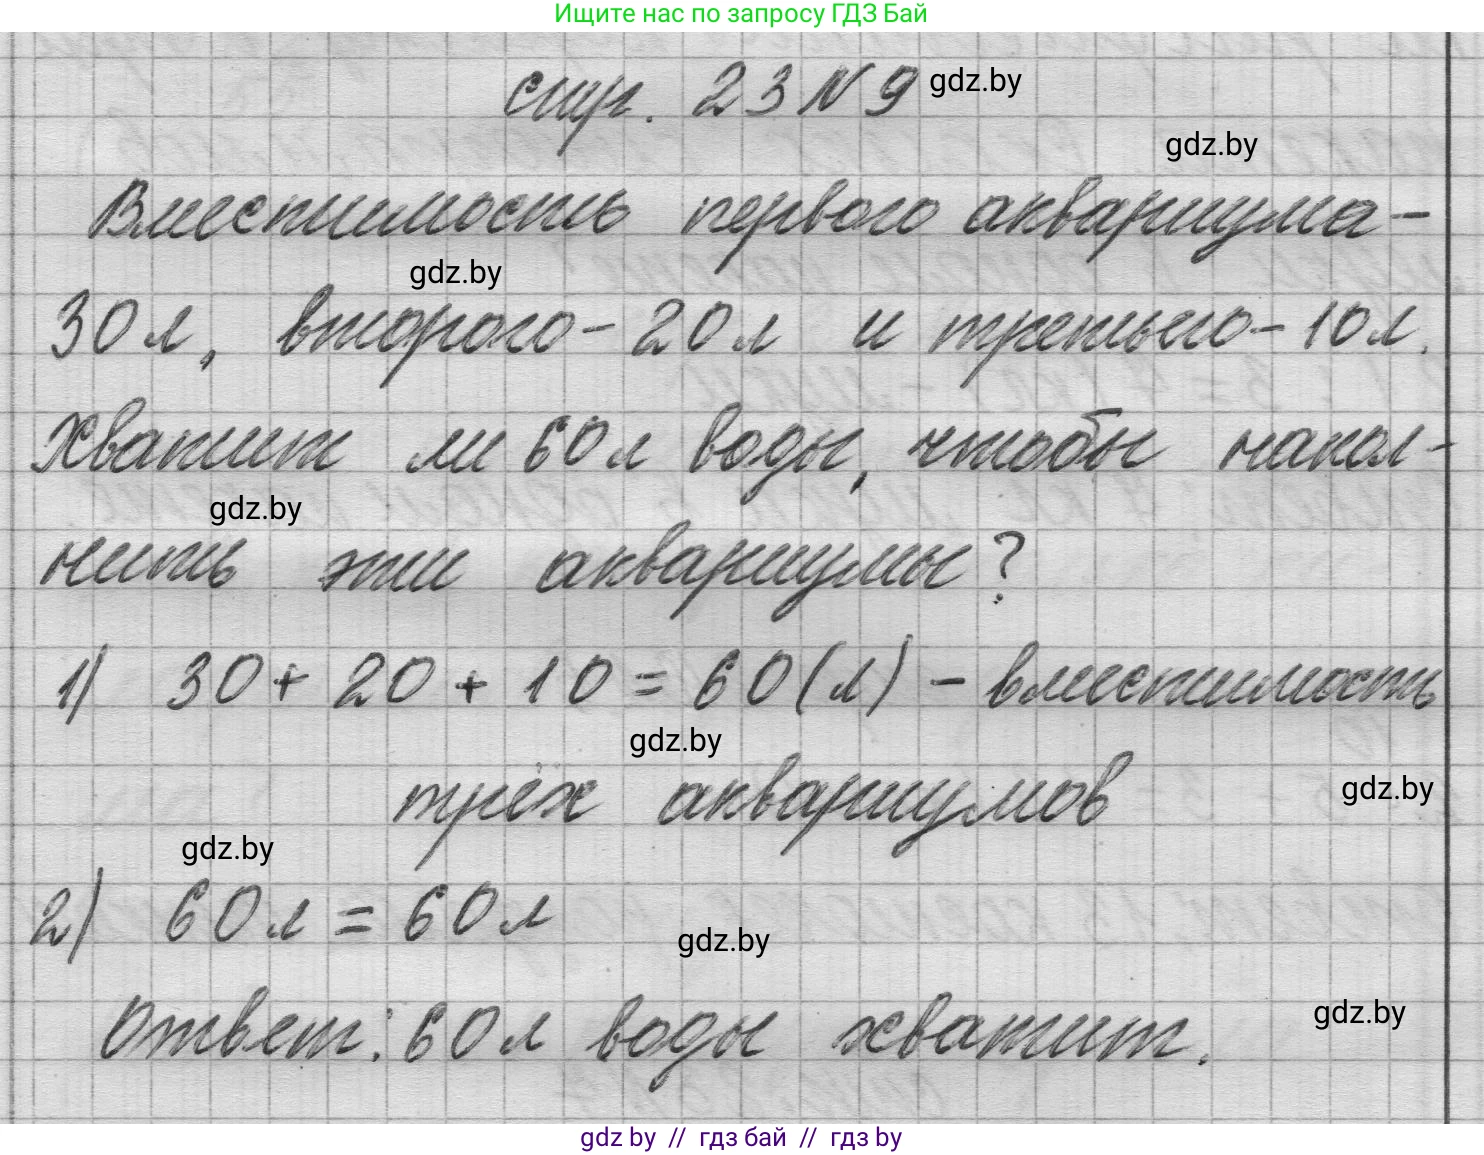 Ищите нас по запросу ГДЗ Бай
стр. 23 № 9 gdz.by
gdz.by
Вместимость первого аквариума –
gdz.by
30 л, второго – 20 л и третьего – 10 л.
Хватит ли 60 л воды, чтобы напол-
gdz.by
нить эти аквариумы?
1) 30 + 20 + 10 = 60 (л) – вместимость
gdz.by
трёх аквариумов
gdz.by
gdz.by
2) 60 л = 60 л
gdz.by
Ответ: 60 л воды хватит.
gdz.by
gdz.by // гдз бай // гдз by